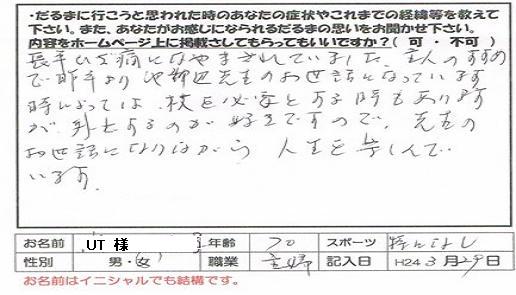 ・だるまに行こうと思われた時のあなたの症状やこれまでの経緯等を教えて
下さい。また、あなたがお感じになられるだるまの思いをお聞かせ下さい。
内容をホームページ上に掲載させてもらってもいいですか?( 可 ・ 不可 )
長年ひざ痛になやまされていました。主人のすすめ
で昨年より 先生のお世話になっています
時によっては、杖を必要とする時もあります
が、外出するのが好きですので、先生の
お世話になりながら 人生を楽しんで
います。
お名前 UT 様 年齢 70 スポーツ 特になし
性別 男・女 職業 主婦 記入日 H24 3月29日
お名前はイニシャルでも結構です。